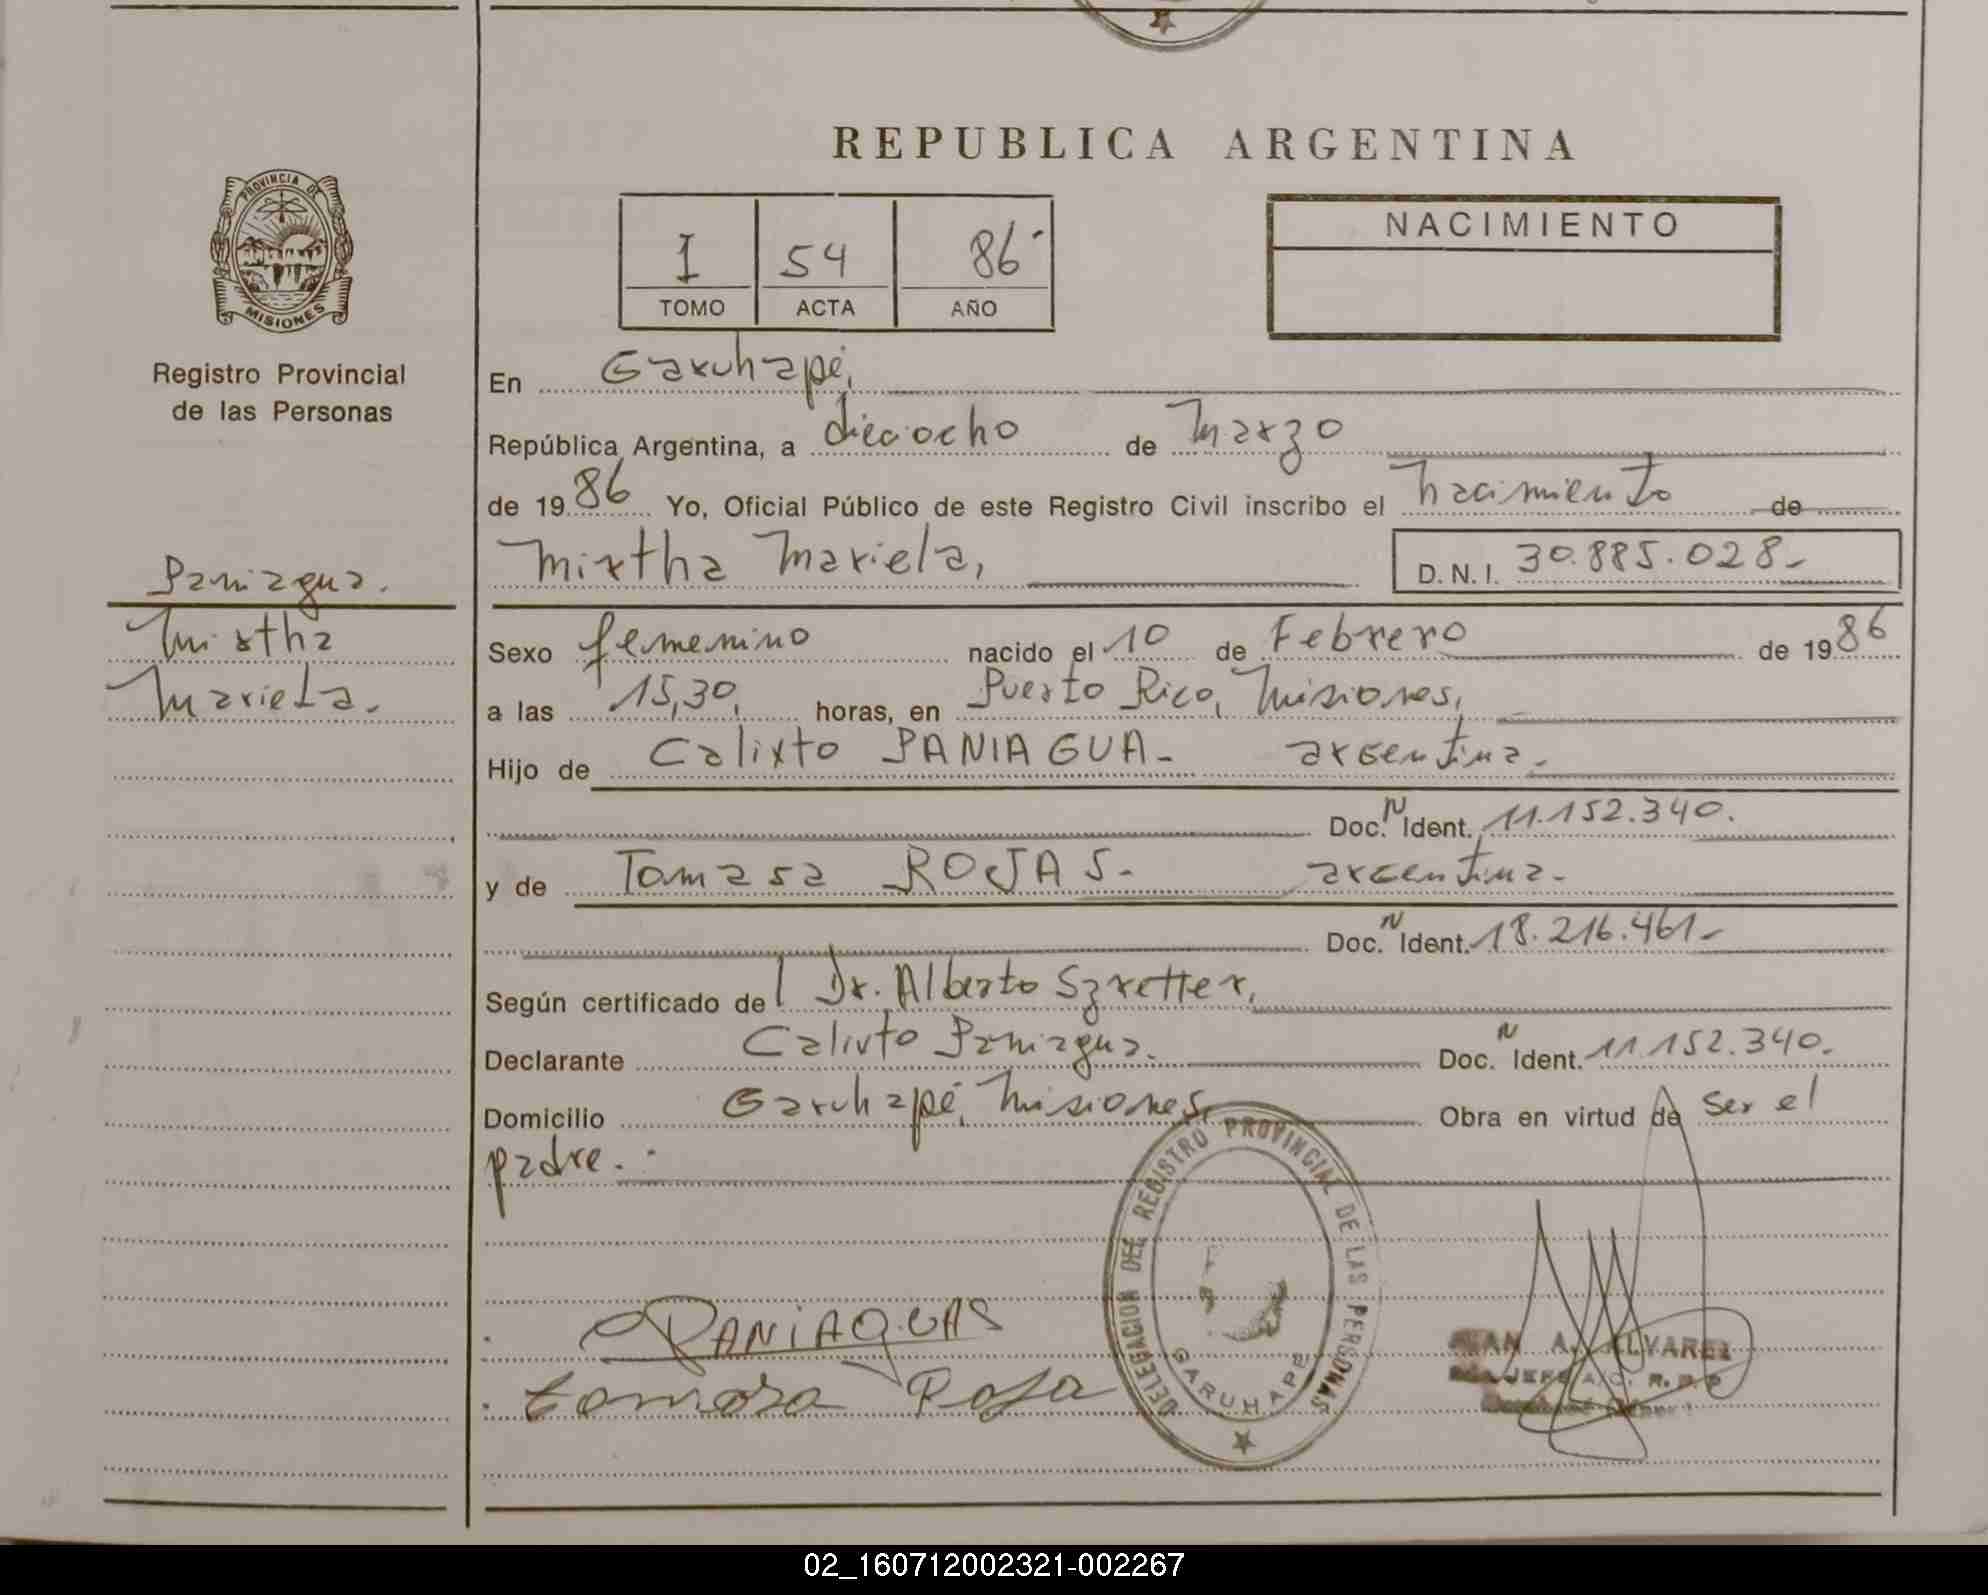 REPUBLICA ARGENTINA
PROVINCIA DE
MISIONES
Registro Provincial
de las Personas
I 54 86
TOMO ACTA AÑO
NACIMIENTO
En Garuhapé,
República Argentina, a dieciocho de Marzo
de 1986 Yo, Oficial Público de este Registro Civil inscribo el nacimiento de
Mirtha Mariela, D.N.I. 30.885.028-
Paniagua.
Mirtha
Mariela.
Sexo femenino nacido el 10 de Febrero de 1986
a las 15,30, horas, en Puerto Rico, Misiones,
Hijo de Calixto PANIAGUA- argentina.
Doc. N Ident. 11.152.340.
y de Tomasa ROJAS- argentina.
Doc. N Ident. 18.216.461-
Según certificado de Dr. Alberto Szretter,
Declarante Calixto Paniagua. Doc. N Ident. 11.152.340.
Domicilio Garuhapé, Misiones, Obra en virtud de ser el
padre.
DELEGACION DEL REGISTRO PROVINCIAL DE LAS PERSONAS
GARUHAPE
PANiAGUAS
tomasa Roja
JUAN A. ALVAREZ
JEFE A/C. R. P. P.
02_160712002321-002267